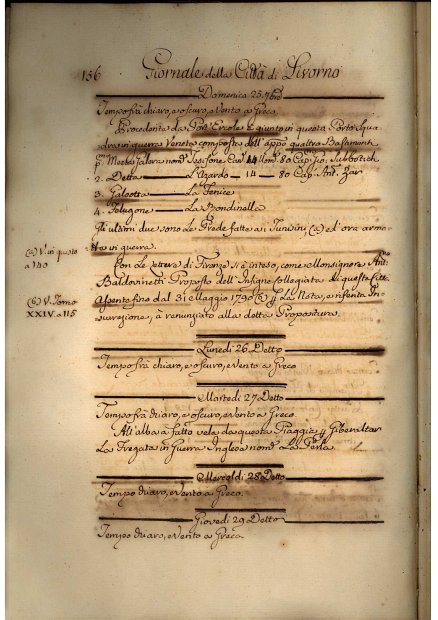 156 Giornale della Città di Livorno
Domenica 25. 7bre
Tempo frà chiaro, e oscuro, e Vento a Greco.
Procedente da Port' Ercole è giunto in questo Porto Squa
dra in guerra Veneta composta dell' appo quattro Bastimenti
14 Uom. 80 Cap.
2. Detto L'Ugardo 14 80 Cap. Ant.
3. Galeotta La Fenice
4. Felugone La Rondinella
Gli ultimi due sono le Prede fatte ai Tunisini, (a) ed' ora arma
te in guerra.
(a) V. in questo
a 140
Con le Lettere di Firenze si è inteso, come Monsignore Ant.
Baldovinetti Proposto dell' Insigne Collegiata di questa Città
Assente fino dal 31 Maggio 1790 (b) La Nota, e riferita In
surrezione, à renunziato alla detta Propositura.
(b) V. Tomo
XXIV. a 115
Lunedì 26 Detto
Tempo frà chiaro, e oscuro, e Vento a Greco
Martedì 27 Detto
Tempo frà chiaro, e oscuro, e Vento a Greco.
All' alba à fatto vela da questa Piaggia Gibeniltar
La Fregata in Guerra Inglese nom. La Perla.
Mercoldì 28 Detto
Tempo chiaro, e Vento a Greco.
Giovedì 29 Detto
Tempo chiaro, e Vento a Greco